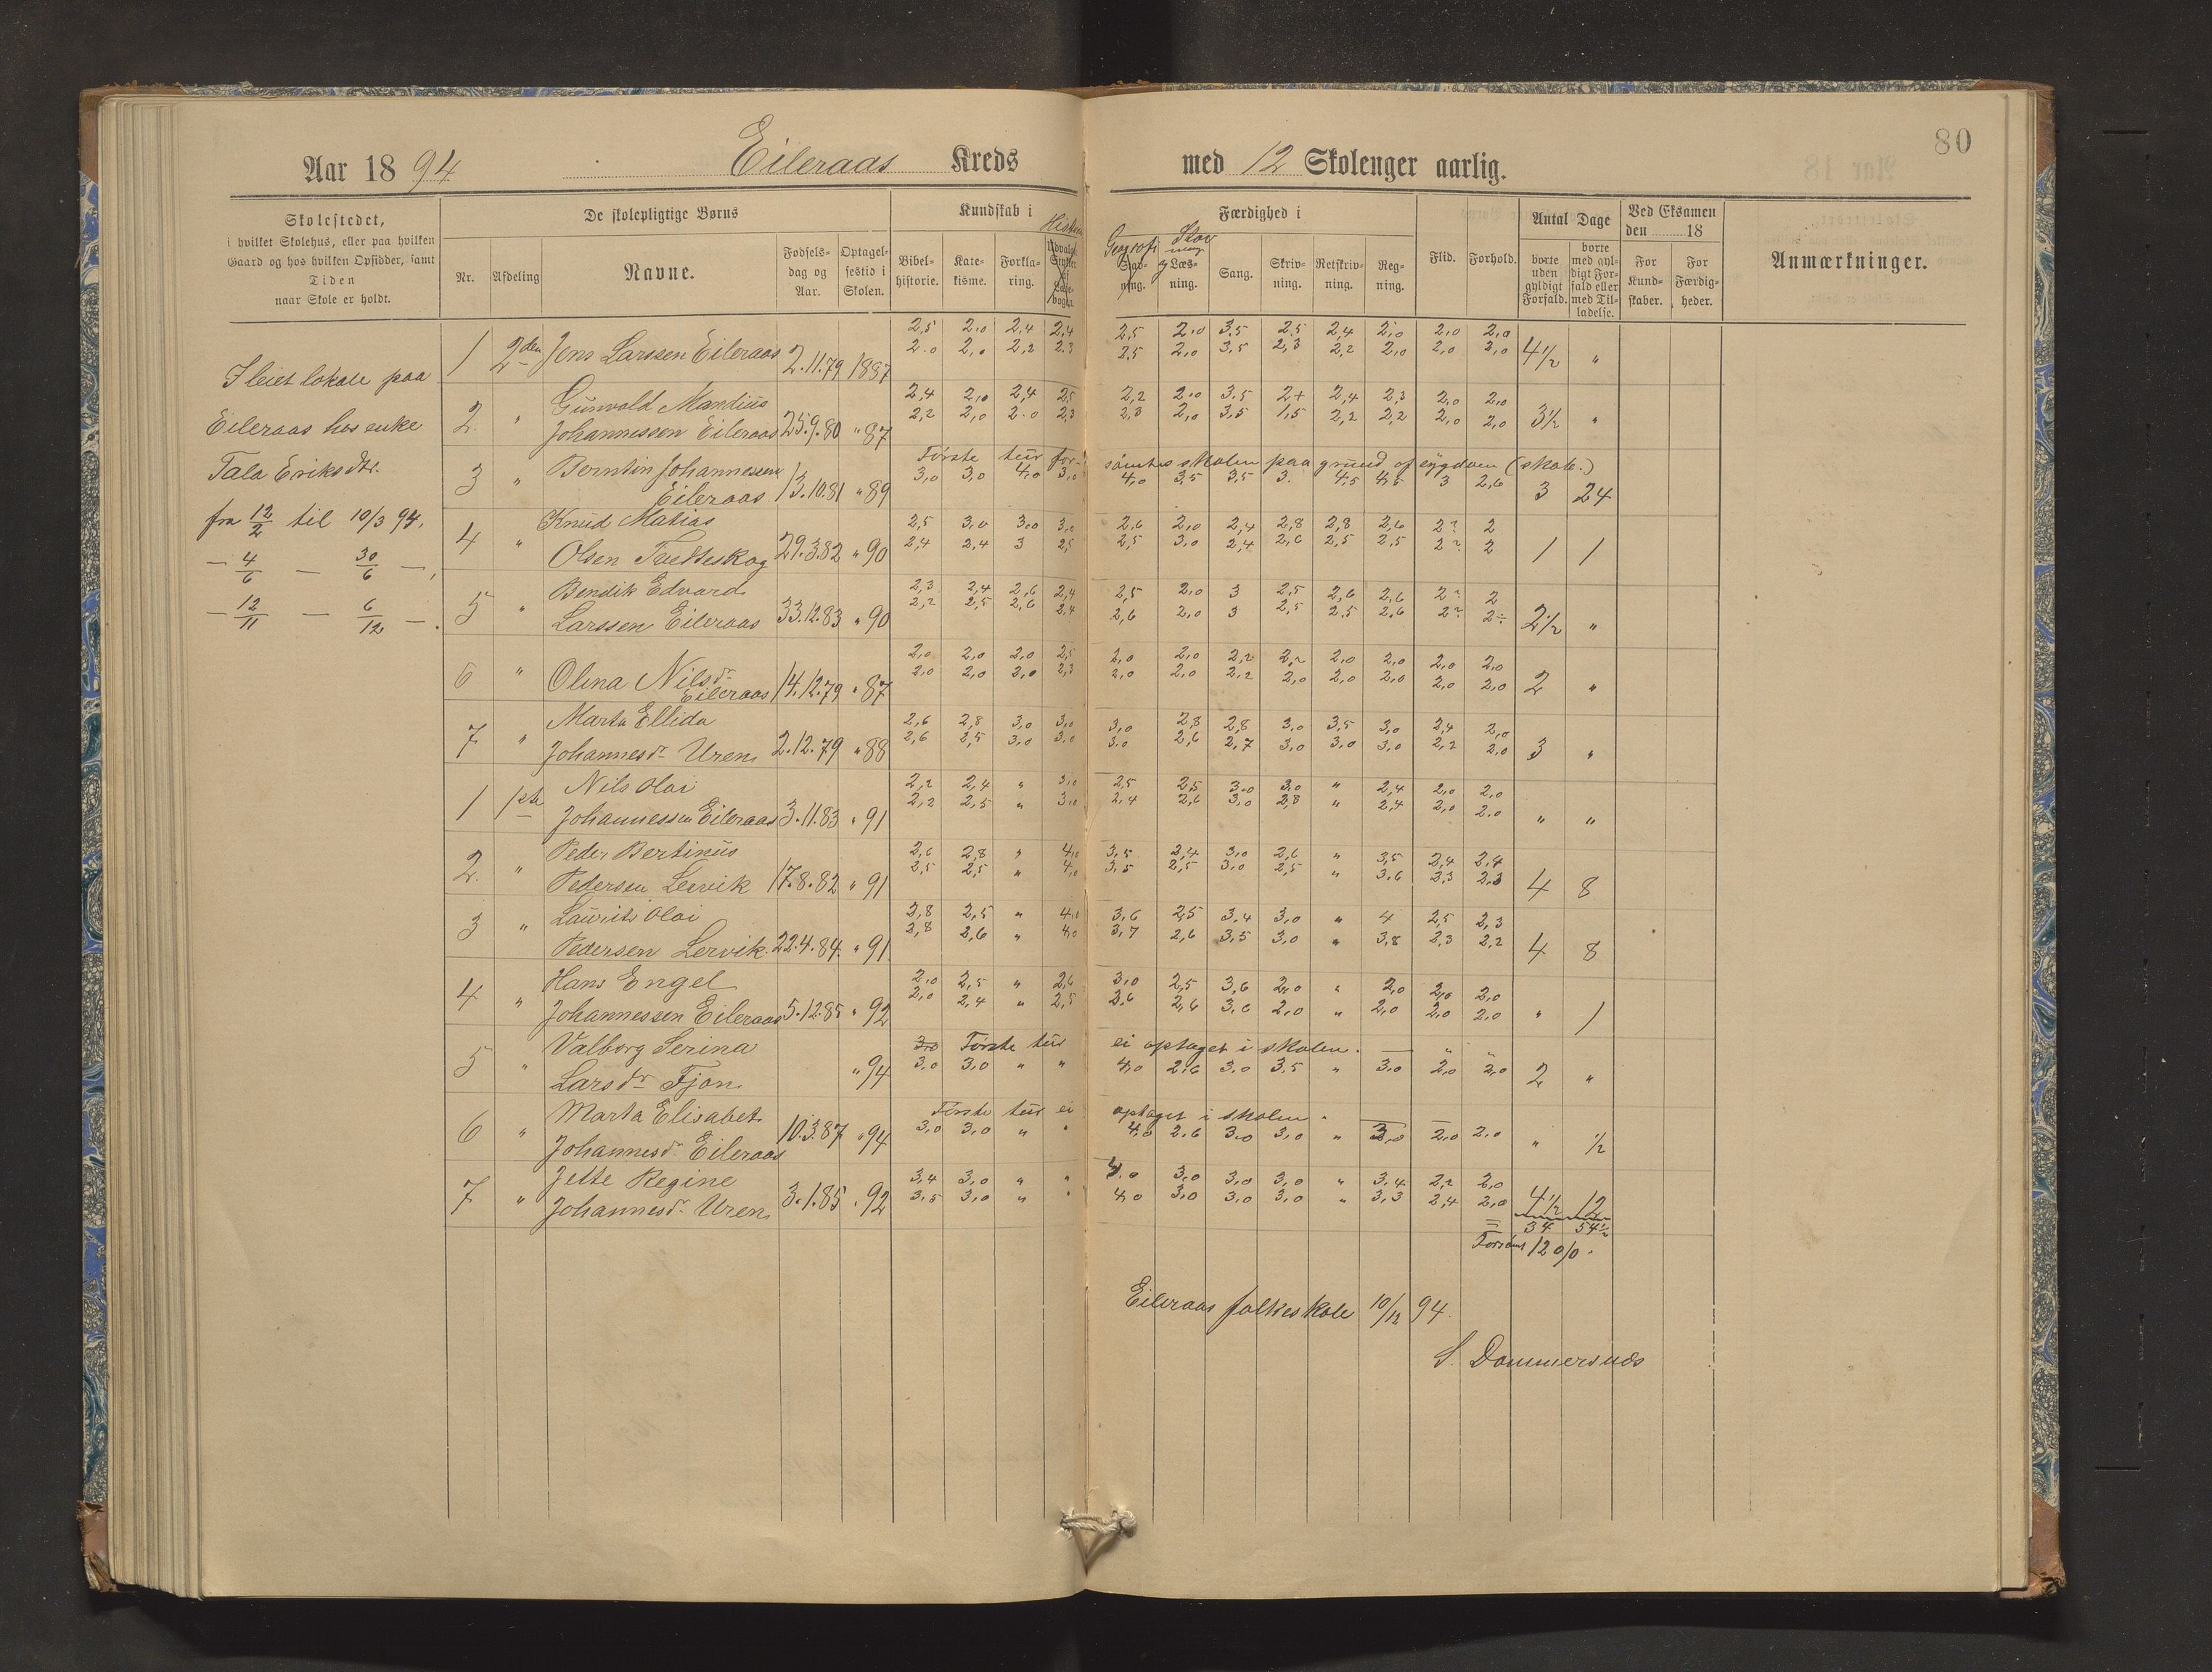 80
Aar 1894. Eileraas Kreds med 12 Skolenger aarlig.
Skolestedet,
i hvilket Skolehus, eller paa hvilken
Gaard og hos hvilken Opsidder, samt
Tiden
naar Skole er holdt.
De skolepligtige Børns
Nr. Afdeling Navne. Fødsels-dag og Aar. Optagel-sestid i Skolen.
Kundskab i
Bibel-historie. Kate-kisme. Forkla-ring. Histor
Færdighed i
Geografi Stavning og Læs-ning. Sang. Skriv-ning. Retskriv-ning. Reg-ning.
Flid. Forhold.
Antal Dage
borte uden gyldigt Forfald. borte med gyl-digt For-fald eller med Til-ladelse.
Ved Eksamen den 18
For Kund-skaber. For Færdig-heder.
Anmærkninger.
I leiet lokale paa
Eileraas hos enke
Tala Eriksdtr.
fra 12/2 til 10/3 94.
— 4/6 — 30/6 —,
— 12/11 — 6/12 —.
1 2den Jens Larssen Eileraas 2.11.79 1887 2,5 2,0 2,4 2,4 2,5 2,0 3,5 2,5 2,4 2,0 2,0 2,0
2.0 2,0 2,2 2.3 2,5 2,0 3,5 2,3 2,2 2,0 2,0 2,0 4½ "
2. " Gunvald Mandius 2,4 2,0 2,4 2,5 2,2 2.0 3.5 2+ 2,4 2,3 2,0 2,0
Johannessen Eileraas 25.9.80 " 87 2,2 2,0 2.0 2,3 2,3 2,0 3,5 1,5 2,2 2,2 2,0 2,0 3½ "
3 " Berntin Johannessen Første tur for-sømtes skolen paa grund af sygdom (skab.)
Eileraas 13.10.81 " 89 3,0 3,0 4,0 3,0 4,0 3,5 3,5 3. 4,5 4,5 3 2,6 3 24
4 " Knud Matias 2,5 3,0 3,0 3,0 2.6 2,0 2,4 2,8 2,8 2,6 2? 2
Olsen Tvedteskog 29.3.82 " 90 2,4 2,4 3 2,5 2,5 3,0 2,4 2,6 2,5 2,5 2? 2 1 1
5 " Bendik Edvard 2,3 2,4 2,6 2,4 2,5 2,0 3 2,5 2,6 2,6 2? 2
Larssen Eileraas 33.12.83 " 90 2,2 2,5 2,6 2,4 2,6 2,0 3 2,5 2,5 2,6 2? 2÷ 2½ "
6 " Olina Nilsdr 2,0 2,0 2,0 2,5 2,0 2,0 2,2 2,2 2,0 2,0 2,0 2,0
Eileraas 14.12.79 " 87 2,0 2,0 2,0 2,3 2,0 2,0 2,2 2,0 2,0 2,0 2,0 2,0 2 "
7 " Marta Ellida 2,6 2,8 3,0 3,0 3,0 2,8 2,8 3,0 3,5 3,0 2,4 2,0
Johannesdr Uren 2.12.79 " 88 2,6 2,5 3,0 3,0 3,0 2,6 2,7 3,0 3,0 3,0 2,2 2,0 3 "
1 1ste Nils Olai 2,2 2,4 " 3,0 2,5 2,5 3,0 3,0 " 2,4 2,0 2,0
Johannessen Eileraas 3.11.83 " 91 2,2 2,5 " 3,0 2,4 2,6 3,0 2,8 " 2,4 2,0 2.0 " "
2. " Peder Bertinus 2,6 2,8 " 4,0 3,5 2,4 3,0 2,6 " 3,5 2,4 2,4
Pedersen Leervik 17.8.82 " 91 2,5 2,5 " 4,0 3,5 2,5 3,0 2,5 " 3.6 2,3 2,3 4 8
3 " Laurits Olai 3,8 2,5 " 4,0 3,6 2,5 3,4 3,0 " 4 2,5 2,3
Pedersen Lervik 22.4.84. " 91 3,8 2,6 " 4,0 3,7 2,6 3,5 3,0 " 3,8 2,3 2,2 4 8
4 " Hans Engel 2,0 2,5 " 2,6 3,0 2,5 3,6 2,0 " 2,0 2,0 2,0
Johannessen Eileraas 5.12.85 " 92 2,0 2,4 " 2,5 3,6 2,6 3,6 2,0 " 2,0 2,0 2,0 " 1
5 " Valborg Serina 3,0 Første tur ei optaget i skolen. — " "
Larsdr Fjon " 94 3,0 3,0 " " 4,0 2,6 3,0 3,5 " 3,0 2,0 2,0 2 "
6 " Marta Elisabet Første tur ei optaget i skolen.
Johannesdr Eileraas 10.3.87 " 94 3,0 3,0 " " 4,0 2,6 3,0 3,0 " 3,0 2,0 2,0 " ½
7 " Jette Regine 3,4 3,0 " " 4,0 3,0 3,0 3,0 " 3,4 2,2 2,0
Johannesdr Uren 3.1.85 " 92 3,5 3,0 " " 4,0 3,0 3,0 3,0 " 3,3 2,4 2,0 4½ 12
= 34 54½
Forsømt 12 0/0.
Eileraas folkeskole 10/12 94.
S. Dommersnæs